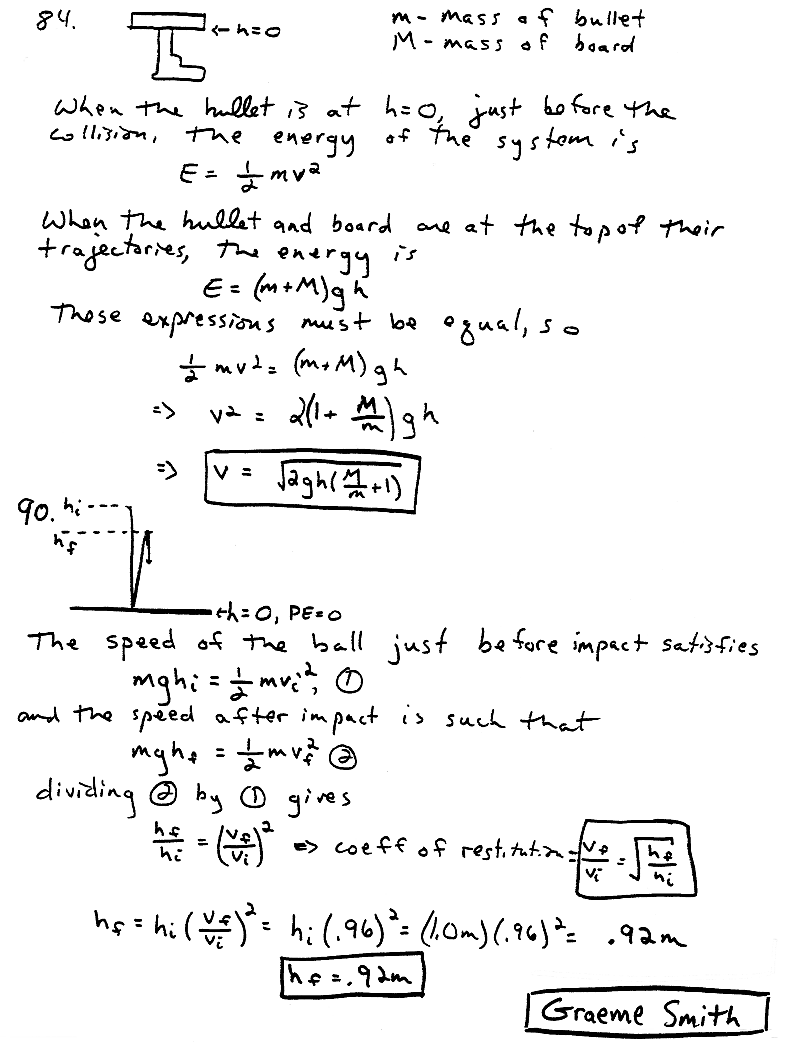 84.
← h=0
m - mass of bullet
M - mass of board
When the bullet is at h=0, just before the
collision, the energy of the system is
E = 1/2 mv²
When the bullet and board are at the top of their
trajectories, the energy is
E = (m+M)gh
These expressions must be equal, so
1/2 mv² = (m+M)gh
=> v² = 2(1 + M/m)gh
=> v = √(2gh(M/m+1))
90. hi
hf
←h=0, PE=0
The speed of the ball just before impact satisfies
mghi = 1/2 mvi², ①
and the speed after impact is such that
mghf = 1/2 mvf² ②
dividing ② by ① gives
hf/hi = (vf/vi)² => coeff of restitution = vf/vi = √(hf/hi)
hf = hi(vf/vi)² = hi(.96)² = (1.0m)(.96)² = .92m
hf = .92m
Graeme Smith